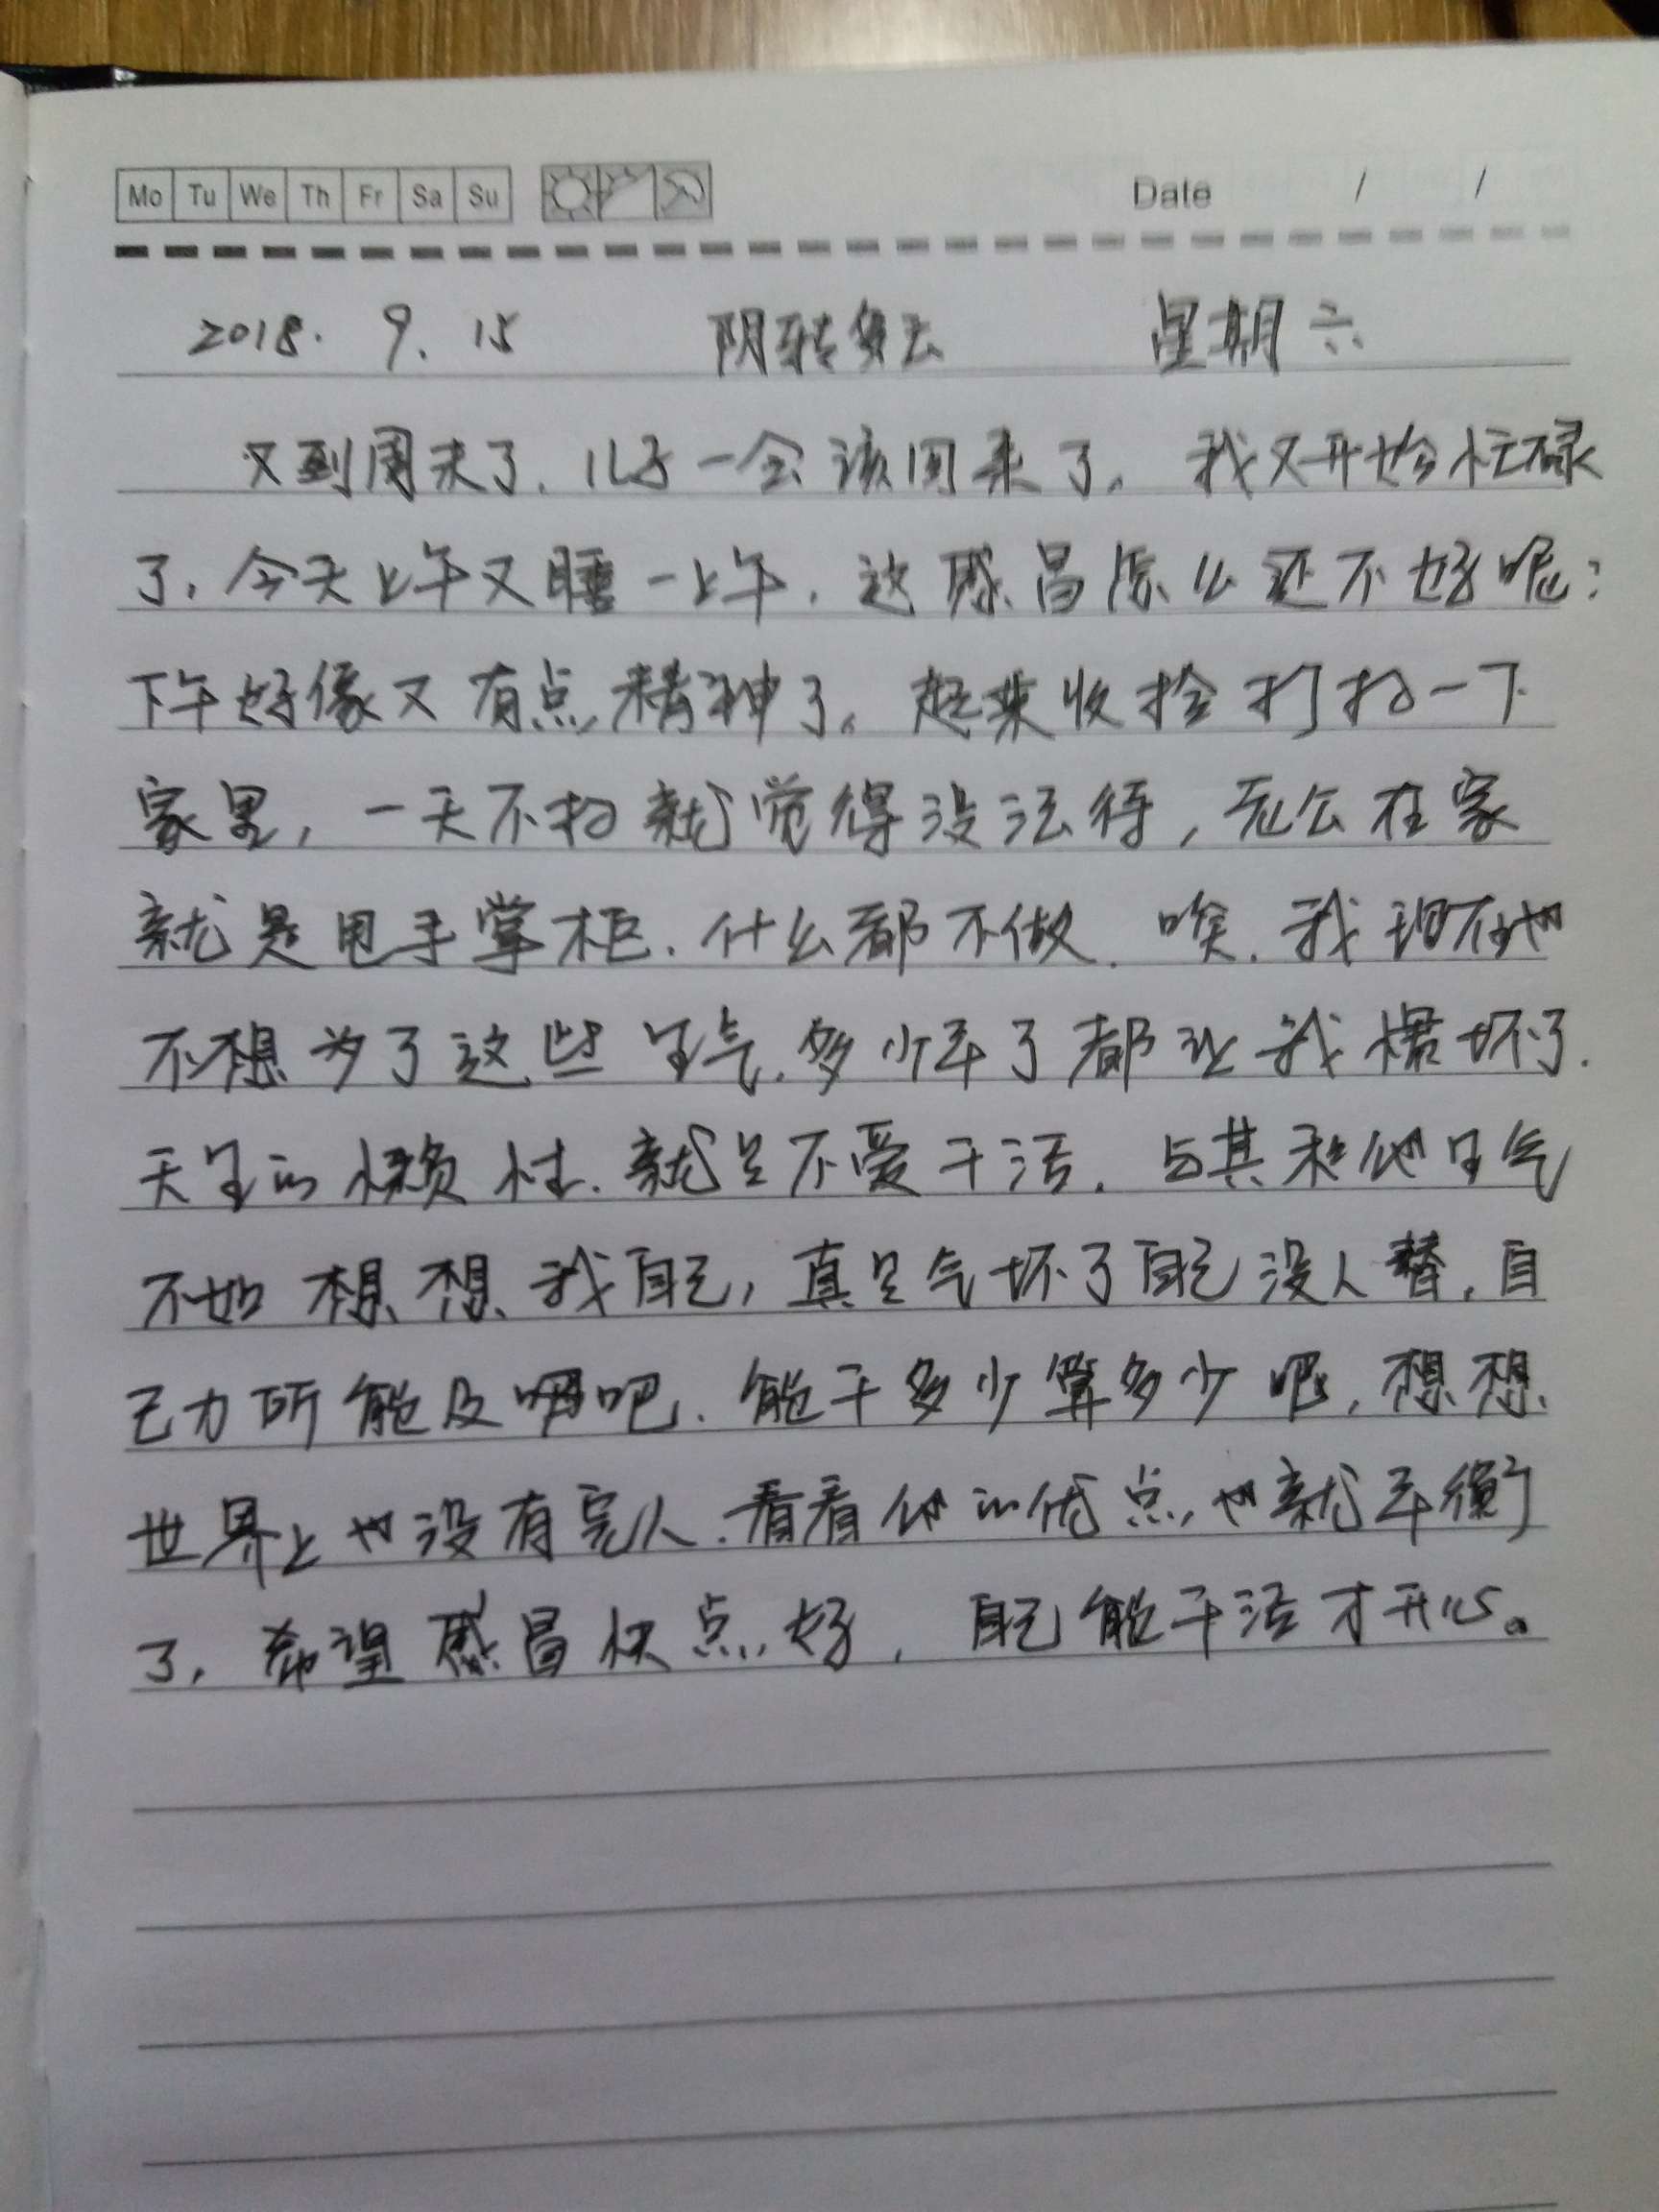 Mo Tu We Th Fr Sa Su Date / /
2018. 9. 15 阴转多云 星期六
又到周末了.儿子一会该回来了。我又开始忙碌
了,今天上午又睡一上午.这感冒怎么还不好呢?
下午好像又有点精神了。起来收拾打扫一下
家里,一天不扫就觉得没法待,老公在家
就是甩手掌柜.什么都不做.唉.我现在也
不想为了这些生气.多少年了都让我惯坏了.
天生的懒性.就是不爱干活.与其和他生气
不如想想我自己,真是气坏了自己没人替,自
己力所能及吧.能干多少算多少吧,想想
世界上也没有完人.看看他的优点,也就平衡
了,希望感冒快点好,自己能干活才开心。